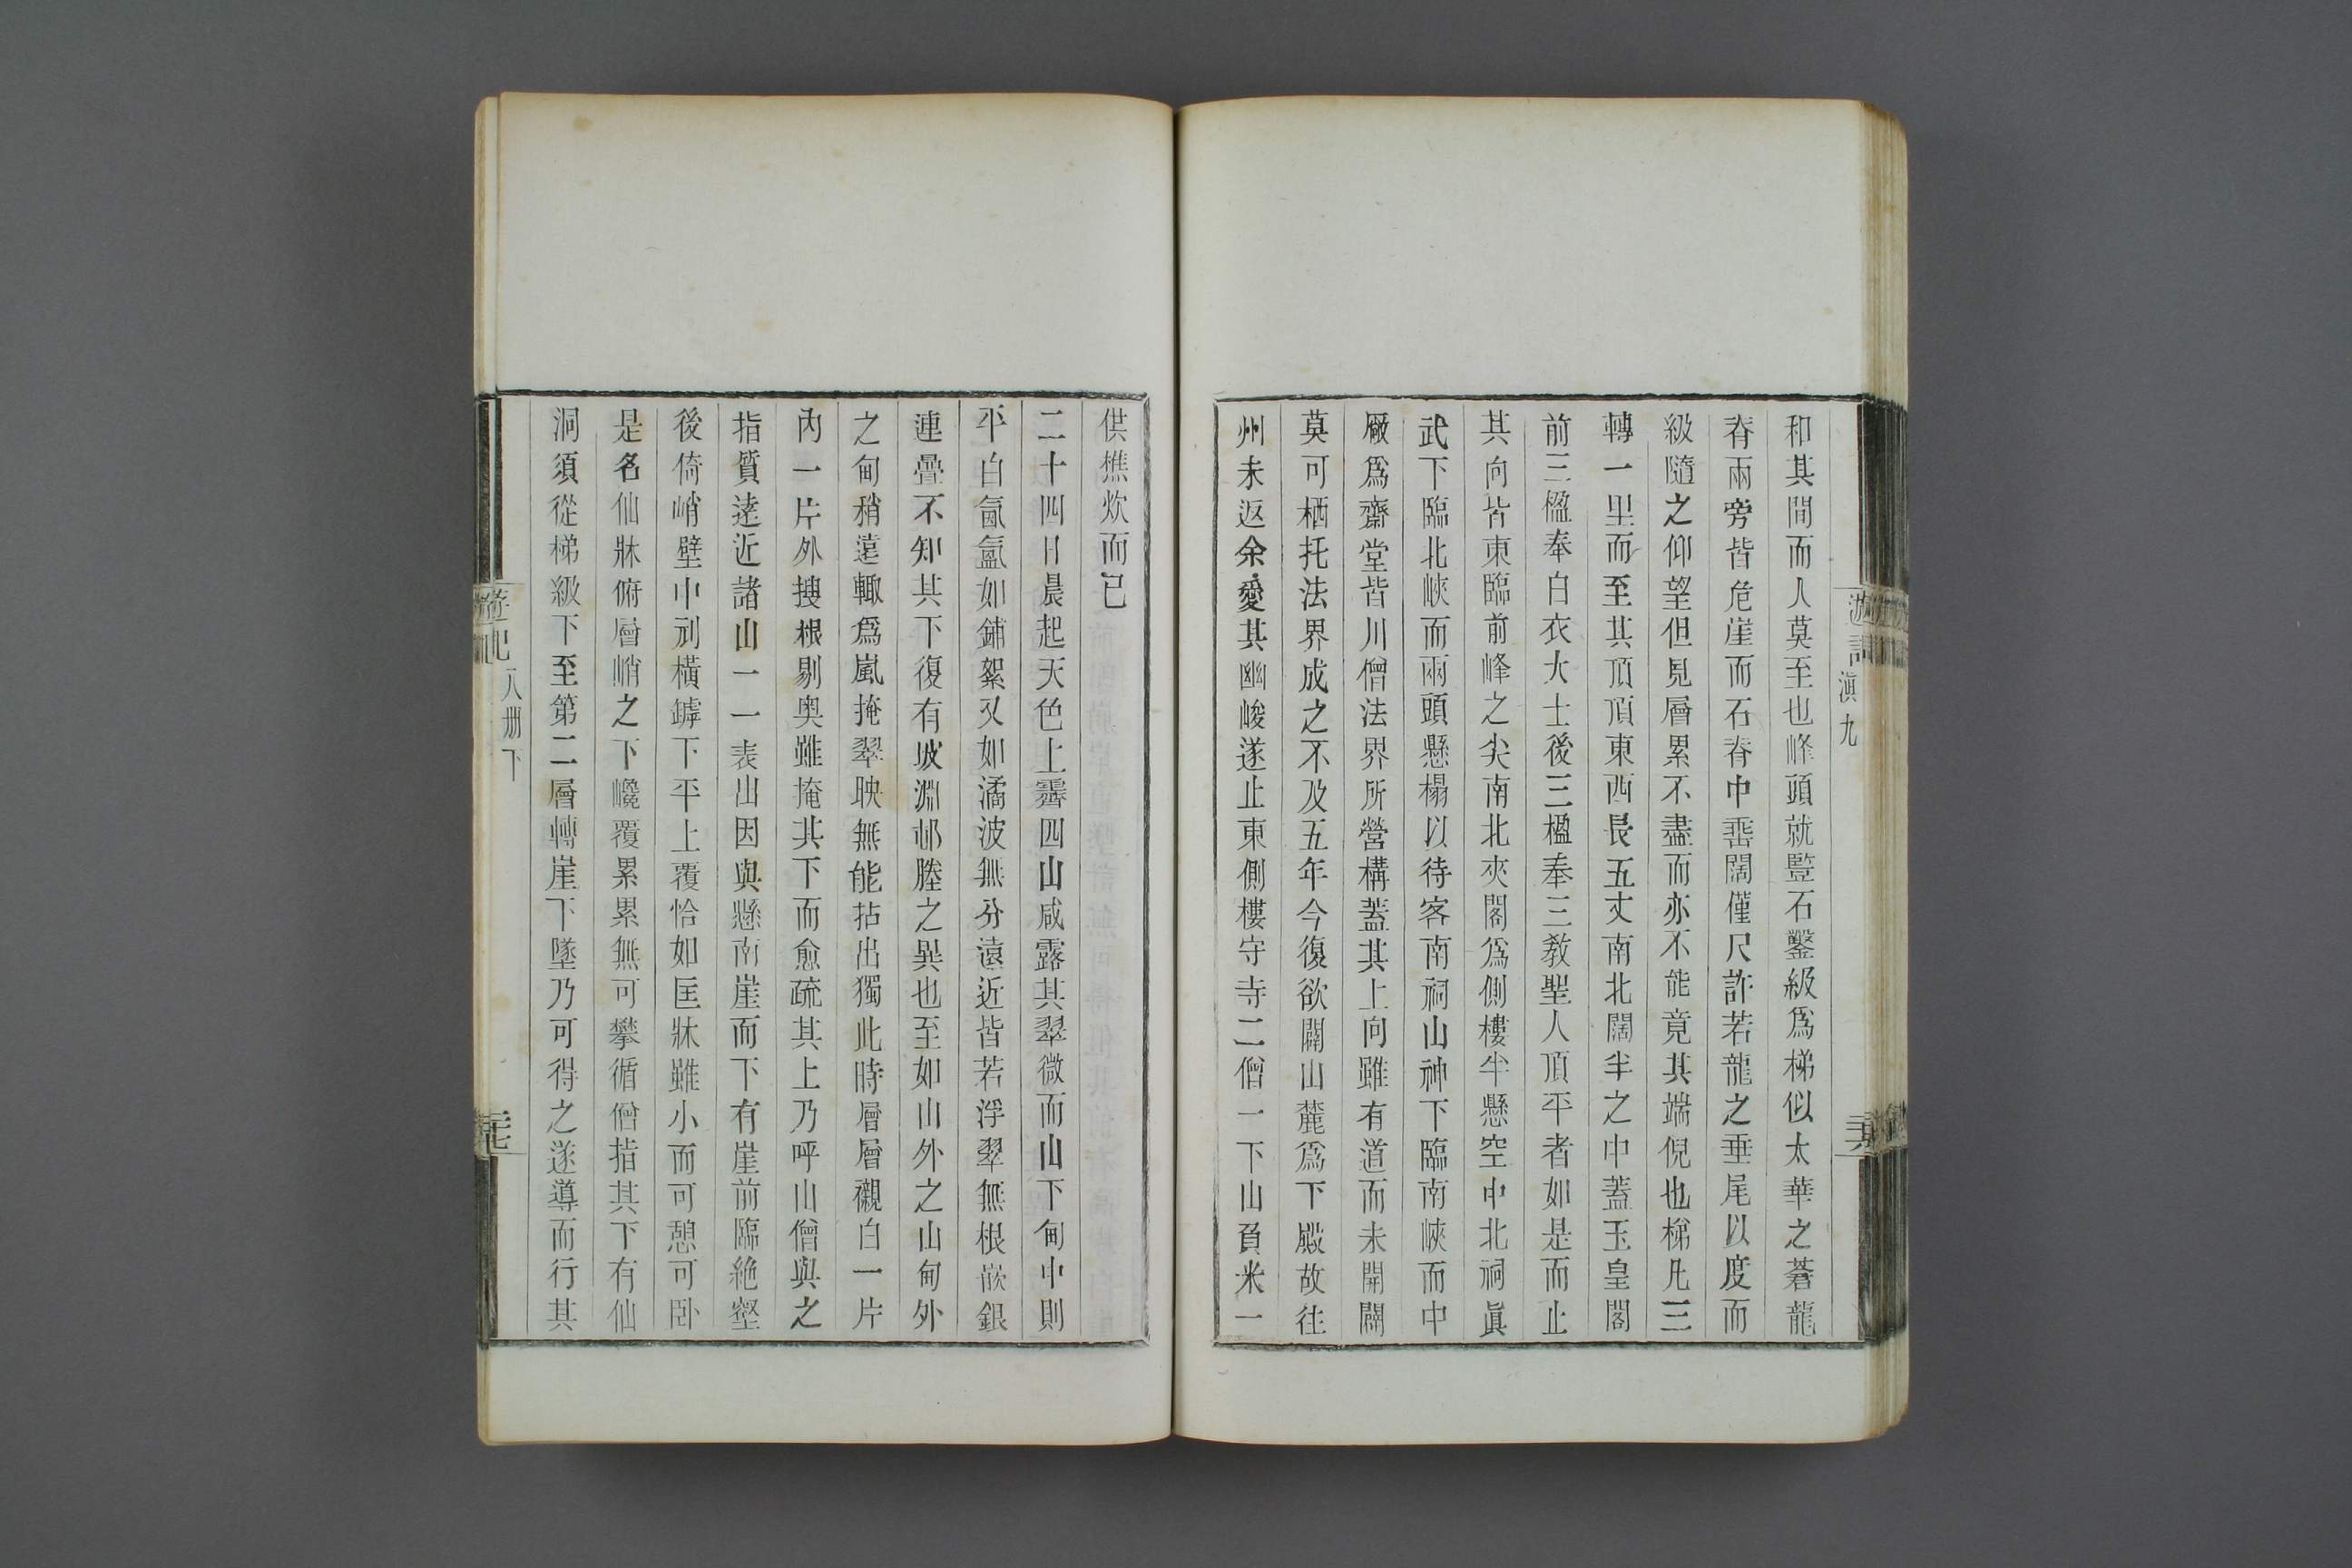 遊記
滇九
和其間而人莫至也峰頭就豎石鑿級爲梯似太華之蒼龍
脊兩旁皆危崖而石脊中垂闊僅尺許若龍之垂尾以度而
級隨之仰望但見層累不盡而亦不能竟其端倪也梯凡三
轉一里而至其頂頂東西長五丈南北闊半之中蓋玉皇閣
前三楹奉白衣大士後三楹奉三教聖人頂平者如是而止
其向皆東臨前峰之尖南北夾閣爲側樓半懸空中北祠眞
武下臨北峽而兩頭懸榻以待客南祠山神下臨南峽而中
厰爲齋堂皆川僧法界所營構蓋其上向雖有道而未開闢
莫可栖托法界成之不及五年今復欲闢山麓爲下殿故往
州未返余愛其幽峻遂止東側樓守寺二僧一下山負米一
供樵炊而已
二十四日晨起天色上霽四山咸露其翠微而山下甸中則
平白氤氳如鋪絮又如潏波無分遠近皆若浮翠無根嵌銀
連疊不知其下復有坡淵邨塍之異也至如山外之山甸外
之甸稍遠輒爲嵐掩翠映無能拈出獨此時層層襯白一片
內一片外搜根剔奥雖掩其下而愈疏其上乃呼山僧與之
指質遠近諸山一一表出因與懸南崖而下有崖前臨絶壑
後倚峭壁中刓橫罅下平上覆恰如匡牀雖小而可憩可卧
是名仙牀俯層峭之下巉覆累累無可攀循僧指其下有仙
洞須從梯級下至第二層轉崖下墜乃可得之遂導而行其
遊記
八册下